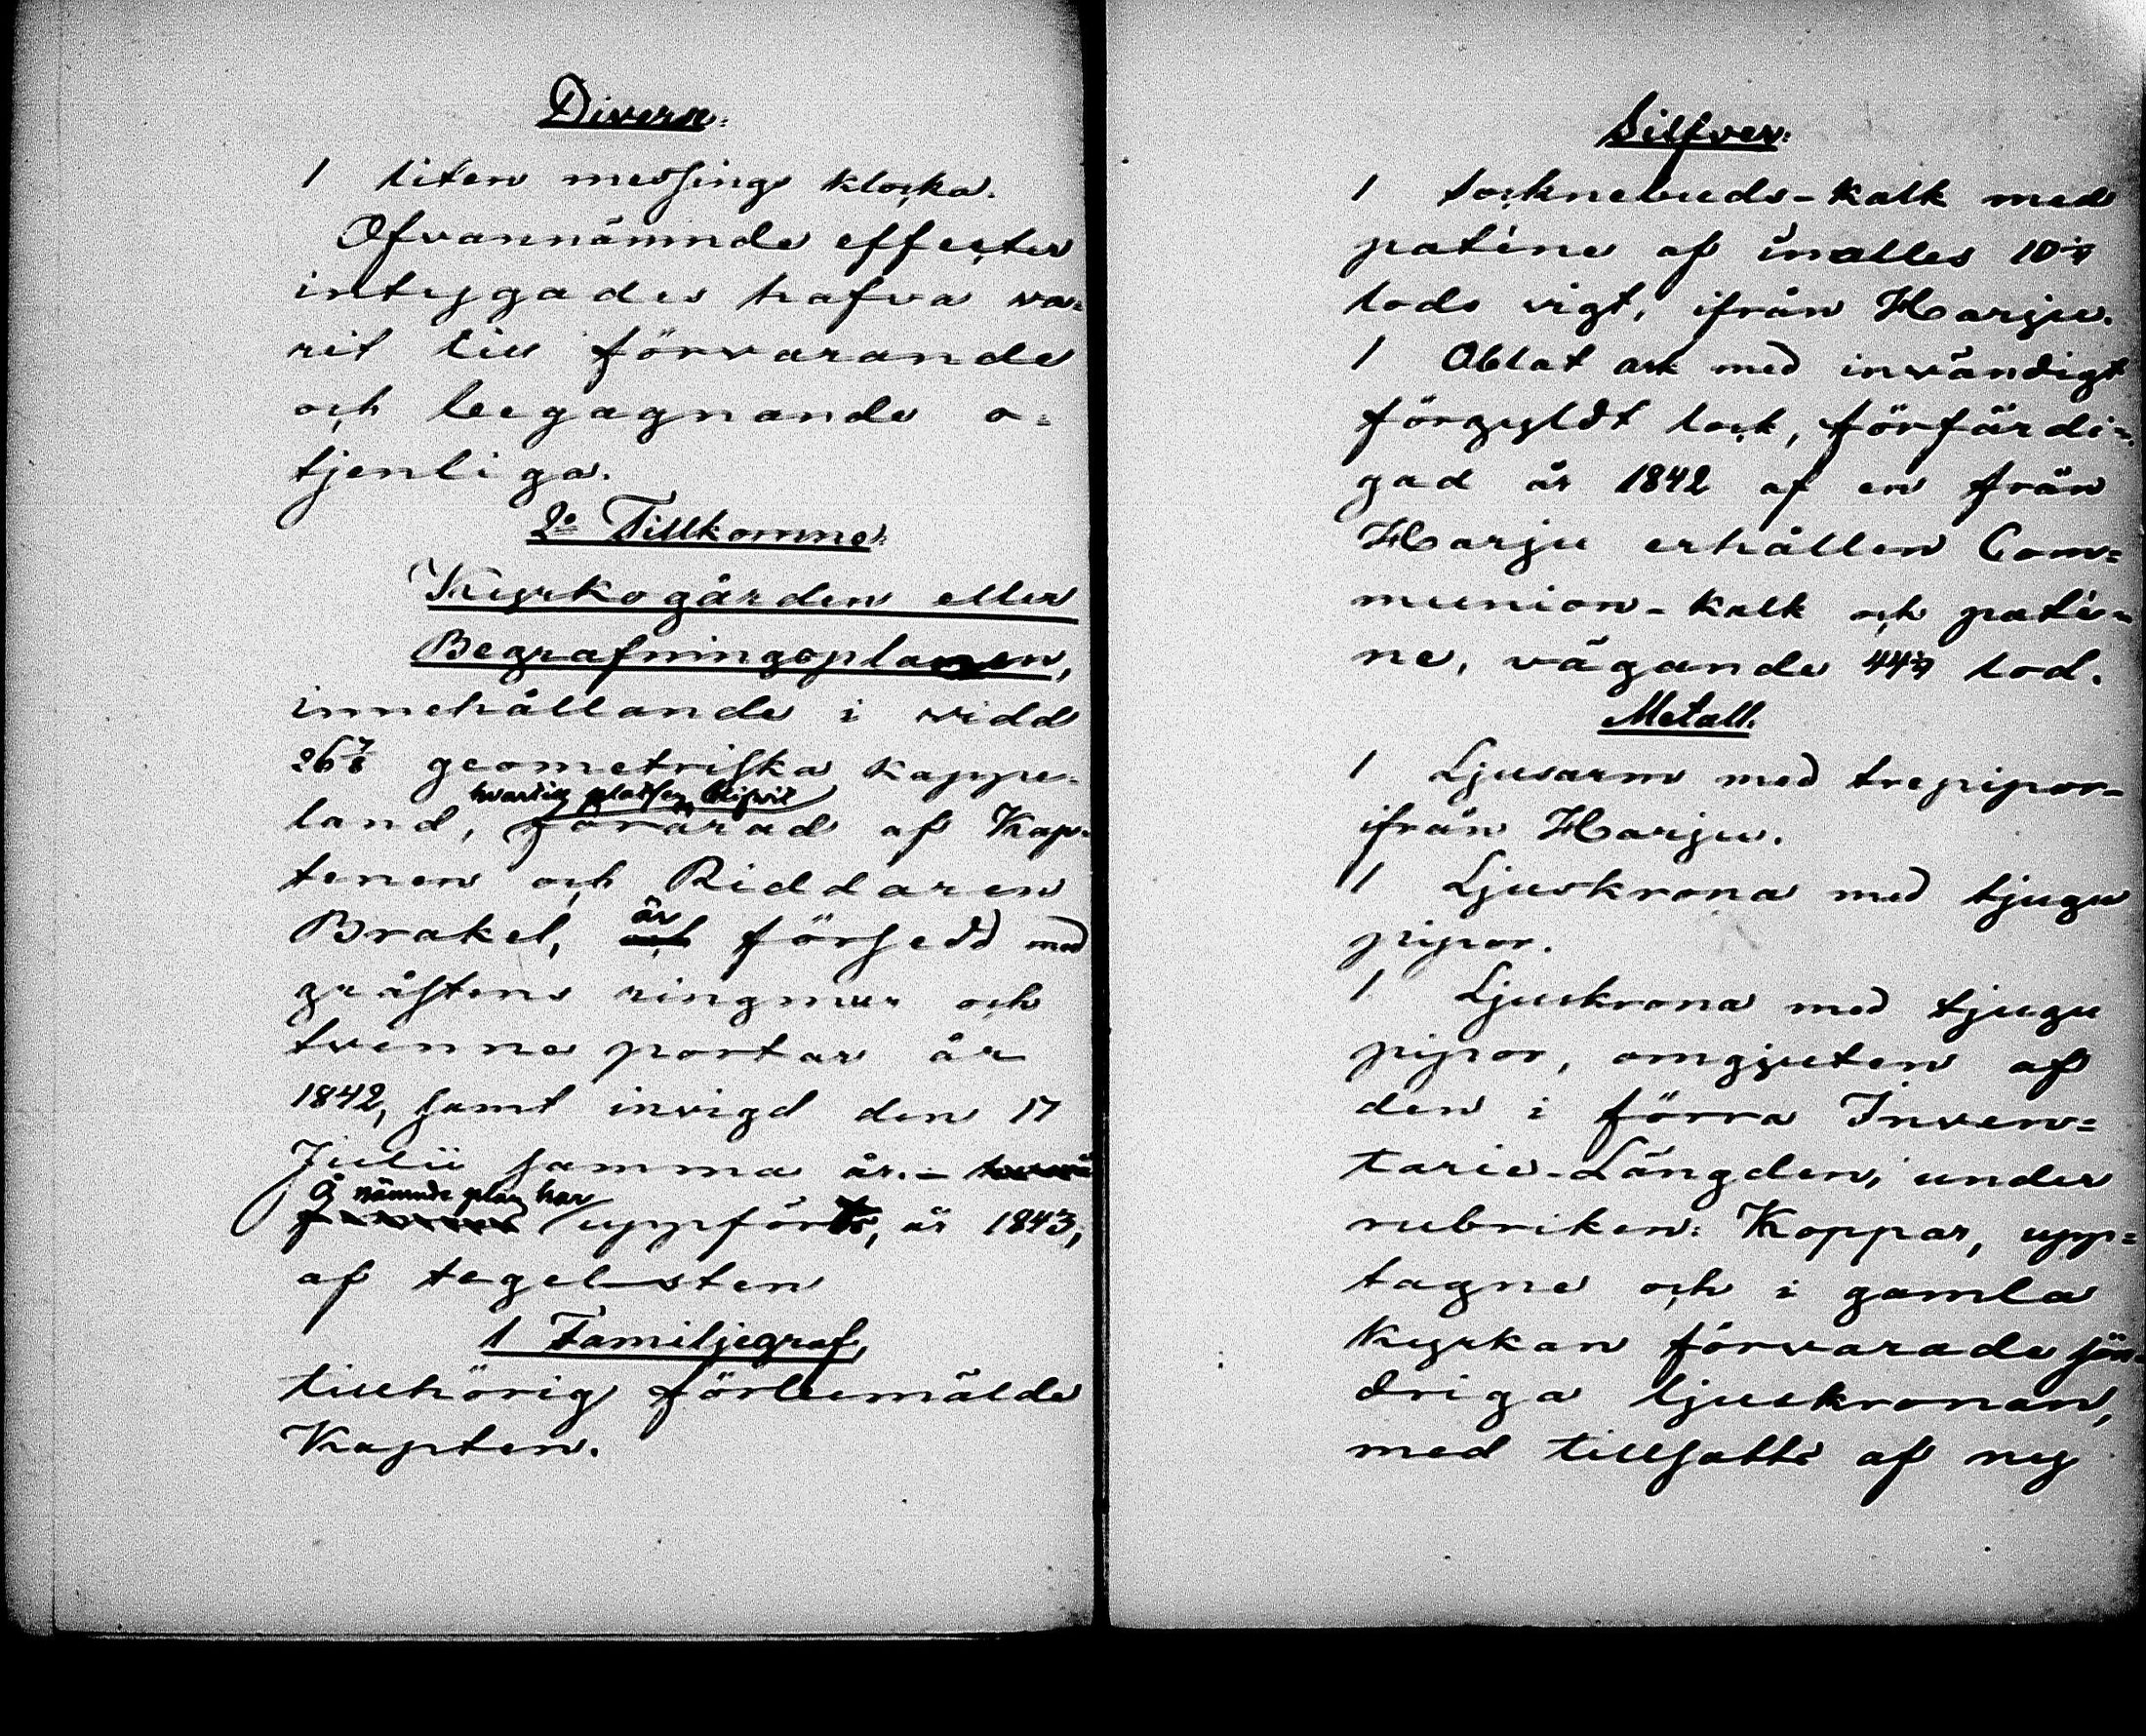 Diverse:
1 liten messings klocka.
Ofvannämnde effecter
intygades hafva va=
rit till förvarande
och begagnande o=
tjenliga.
2o Tillkomne:
Kyrkogården eller
Begrafningsplanen,
innehållande i vidd
26 7/8 geometriska kappe=
hvartill platsen blifvit
land, förärad af Kap=
tenen och Riddaren
är
Brakel, och försedd med
gråstens ringmur och
tvenne portar år
1842, samt invigd den 17
Julii samma år. –
Å nämnde plan har
uppförts, år 1843,
af tegelsten
1 Familjegraf,
tillhörig förbemälde
Kapten.
Silfver:
1 Socknebuds-kalk med
paténe af inalles 10
lods vigt, ifrån Harju.
1 Oblat ask med invändigt
förgyldt lock, förfärdi=
gad år 1842 af en från
Harju erhållen Com=
munion-kalk och paté=
ne, vägande 44 lod.
Metall.
1 Ljusarm med trepipor
ifrån Harju.
1 Ljuskrona med tjugu
pipor.
1 Ljuskrona med tjugu
pipor, omgjuten af
den i förra Inven=
tarie-Längden, under
rubriken: Koppar, upp=
tagne och i gamla
Kyrkan förvarade sön=
driga ljuskronan,
med tillsatts af ny